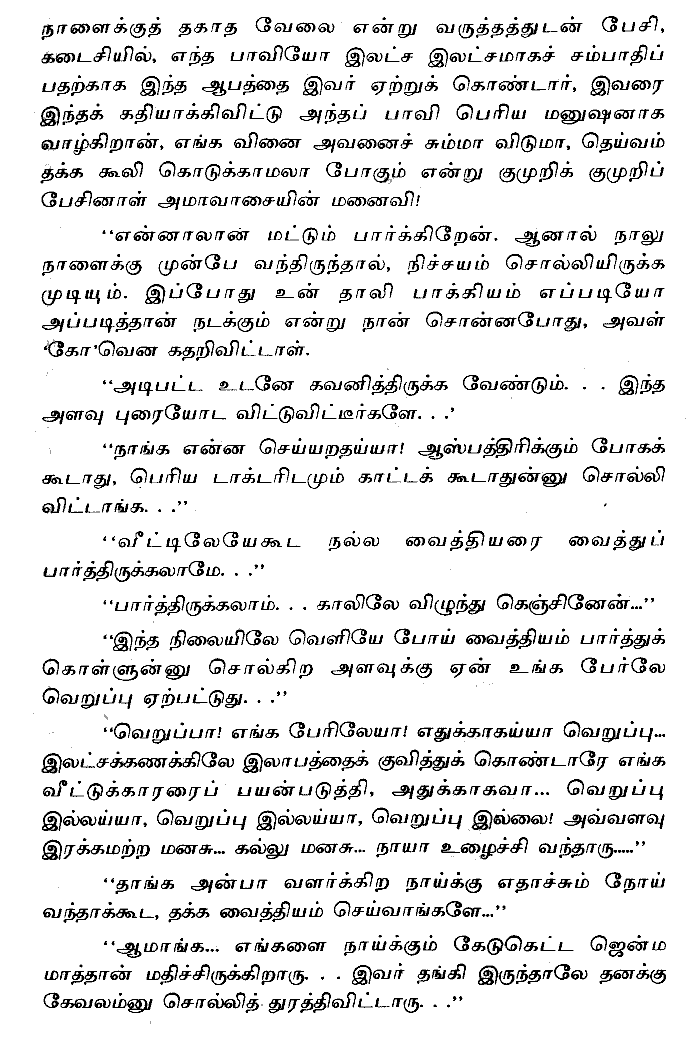 நாளைக்குத் தகாத வேலை என்று வருத்தத்துடன் பேசி,
கடைசியில், எந்த பாவியோ இலட்ச இலட்சமாகச் சம்பாதிப்
பதற்காக இந்த ஆபத்தை இவர் ஏற்றுக் கொண்டார், இவரை
இந்தக் கதியாக்கிவிட்டு அந்தப் பாவி பெரிய மனுஷனாக
வாழ்கிறான், எங்க வினை அவனைச் சும்மா விடுமா, தெய்வம்
தக்க கூலி கொடுக்காமலா போகும் என்று குமுறிக் குமுறிப்
பேசினாள் அமாவாசையின் மனைவி!
‘‘என்னாலான் மட்டும் பார்க்கிறேன். ஆனால் நாலு
நாளைக்கு முன்பே வந்திருந்தால், நிச்சயம் சொல்லியிருக்க
முடியும். இப்போது உன் தாலி பாக்கியம் எப்படியோ
அப்படித்தான் நடக்கும் என்று நான் சொன்னபோது, அவள்
‘கோ’வென கதறிவிட்டாள்.
‘‘அடிபட்ட உடனே கவனித்திருக்க வேண்டும். . . இந்த
அளவு புரையோட விட்டுவிட்டீர்களே. . .’
‘‘நாங்க என்ன செய்யறதய்யா! ஆஸ்பத்திரிக்கும் போகக்
கூடாது, பெரிய டாக்டரிடமும் காட்டக் கூடாதுன்னு சொல்லி
விட்டாங்க. . .’’
‘‘வீட்டிலேயேகூட நல்ல வைத்தியரை வைத்துப்
பார்த்திருக்கலாமே. . .’’
‘‘பார்த்திருக்கலாம். . . காலிலே விழுந்து கெஞ்சினேன்...’’
‘‘இந்த நிலையிலே வெளியே போய் வைத்தியம் பார்த்துக்
கொள்ளுன்னு சொல்கிற அளவுக்கு ஏன் உங்க பேர்லே
வெறுப்பு ஏற்பட்டுது. . .’’
‘‘வெறுப்பா! எங்க பேரிலேயா! எதுக்காகய்யா வெறுப்பு...
இலட்சக்கணக்கிலே இலாபத்தைக் குவித்துக் கொண்டாரே எங்க
வீட்டுக்காரரைப் பயன்படுத்தி, அதுக்காகவா... வெறுப்பு
இல்லய்யா, வெறுப்பு இல்லய்யா, வெறுப்பு இல்லை! அவ்வளவு
இரக்கமற்ற மனசு... கல்லு மனசு... நாயா உழைச்சி வந்தாரு.....’’
‘‘தாங்க அன்பா வளர்க்கிற நாய்க்கு எதாச்சும் நோய்
வந்தாக்கூட, தக்க வைத்தியம் செய்வாங்களே...’’
‘‘ஆமாங்க... எங்களை நாய்க்கும் கேடுகெட்ட ஜென்ம
மாத்தான் மதிச்சிருக்கிறாரு. . . இவர் தங்கி இருந்தாலே தனக்கு
கேவலம்னு சொல்லித் துரத்திவிட்டாரு. . .’’